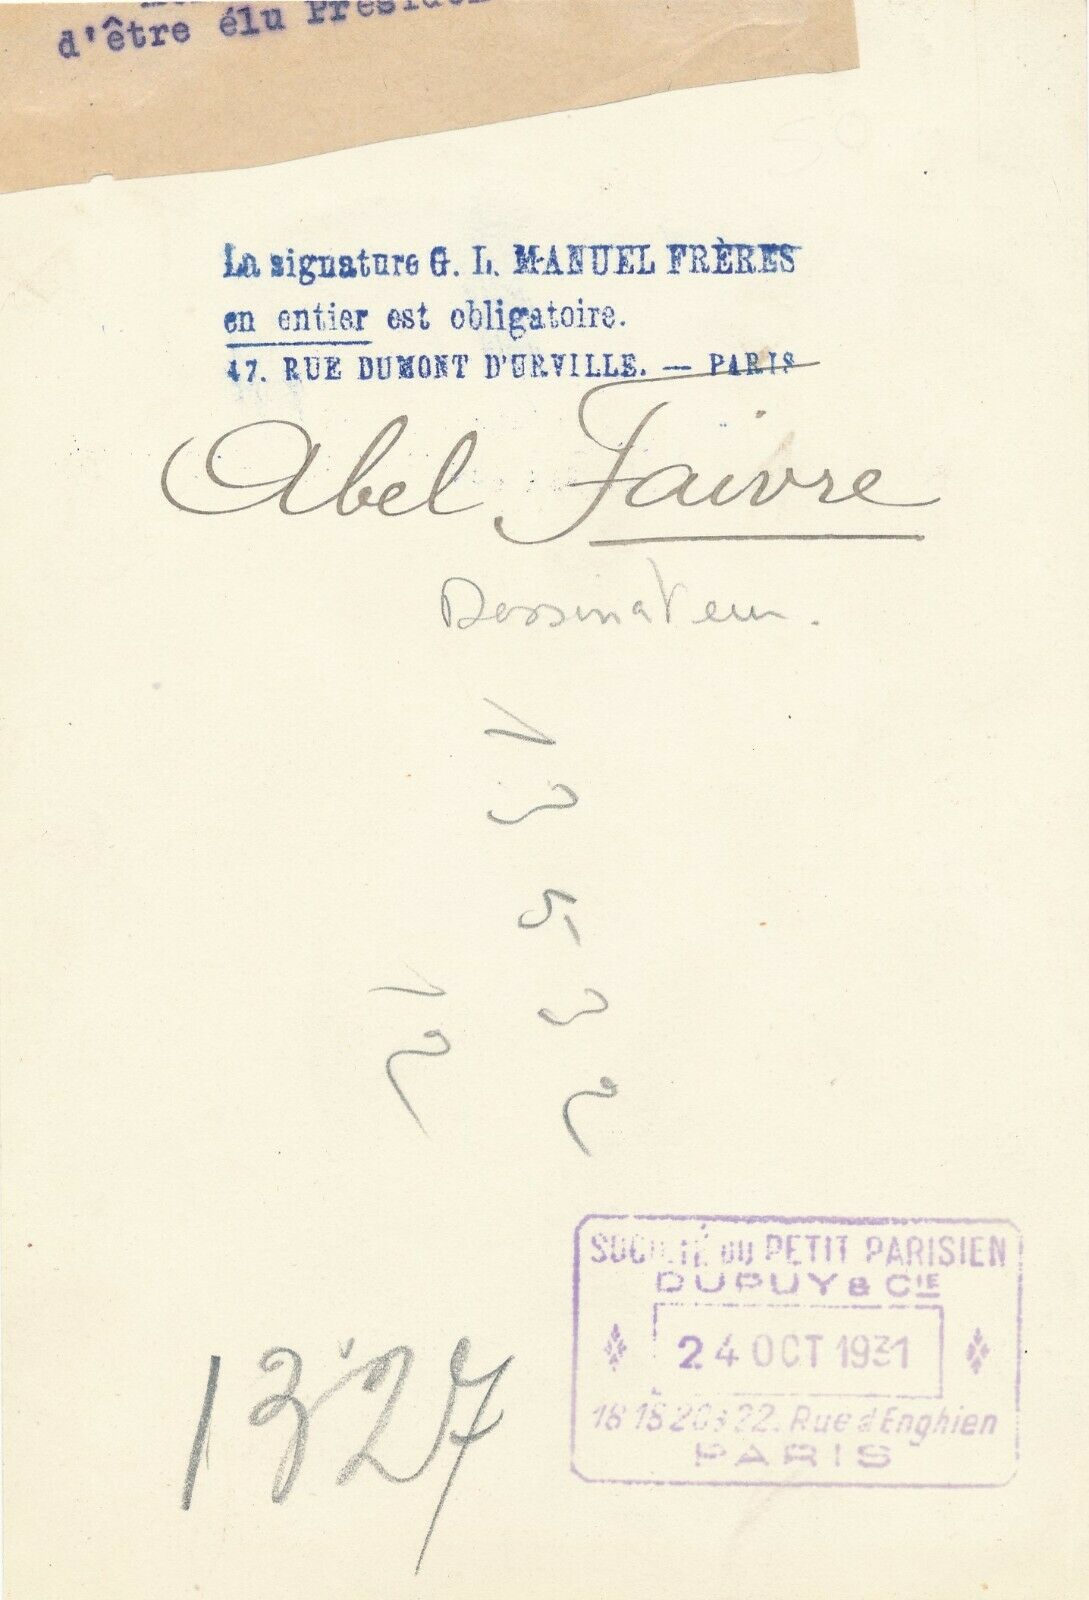 d'être élu
La signature G. L. MANUEL FRÈRES
en entier est obligatoire.
47. RUE DUMONT D'URVILLE. — PARIS
Abel Faivre
Dessinateur.
SOCIÉTÉ DU PETIT PARISIEN
DUPUY & CIE
24 OCT 1931
Rue d'Enghien
PARIS
1327